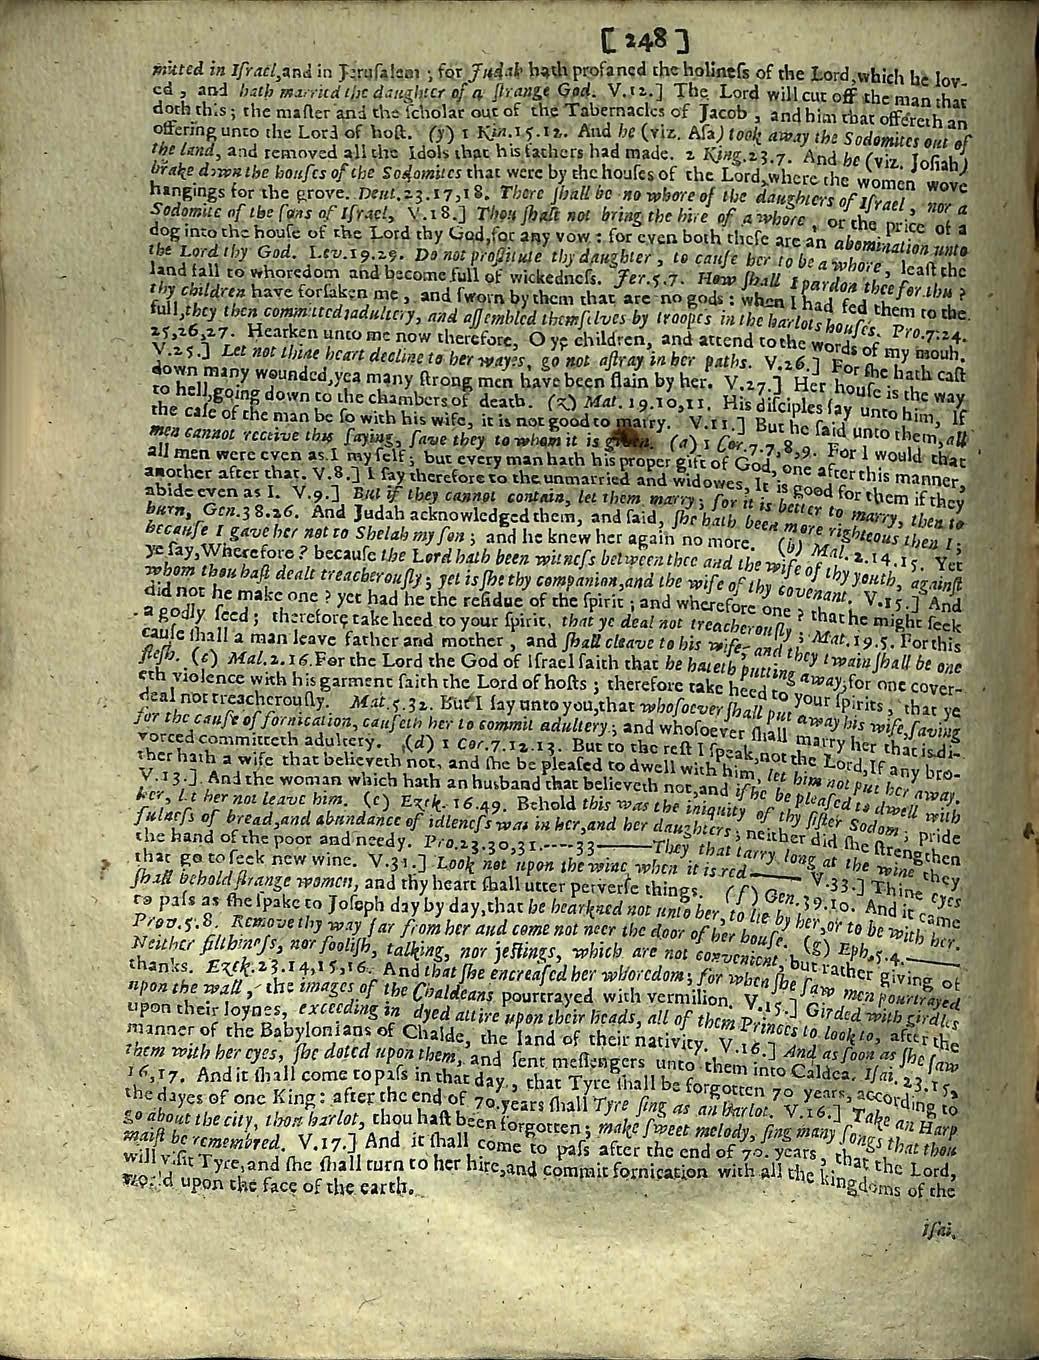 [ 248 ]
mitted in Iſrael,and in Jeruſalem ; for Judah hath profaned the holineſs of the Lord,which he lov-
ed , and hath married the daughter of a ſtrange God. V.12.] The Lord will cut off the man that
doth this ; the maſter and the ſcholar out of the Tabernacles of Jacob , and him that offereth an
offering unto the Lord of hoſt. (y) 1 Kin.15.12. And he (viz. Aſa) took away the Sodomites out of
the land, and removed all the Idols that his fathers had made. 2 King.23.7. And he (viz. Joſiah)
brake down the houſes of the Sodomites that were by the houſes of the Lord,where the women wove
hangings for the grove. Deut.23.17,18. There ſhall be no whore of the daughters of Iſrael , nor a
Sodomite of the ſons of Iſrael, V.18.] Thou ſhalt not bring the hire of a whore , or the price of a
dog into the houſe of the Lord thy God,for any vow : for even both theſe are an abomination unto
the Lord thy God. Lev.19.29. Do not proſtitute thy daughter , to cauſe her to be a whore , leaſt the
land fall to whoredom and become full of wickedneſs. Jer.5.7. How ſhall I pardon thee for this ?
thy children have forſaken me , and ſworn by them that are no gods : when I had fed them to the
full,they then committed adultery, and aſſembled themſelves by troopes in the harlots houſes. Pro.7.24.
25,26,27. Hearken unto me now therefore, O ye children, and attend to the words of my mouh.
V.25.] Let not thine heart decline to her wayes, go not aſtray in her paths. V.26.] For ſhe hath caſt
down many wounded,yea many ſtrong men have been ſlain by her. V.27.] Her houſe is the way
to hell,going down to the chambers of death. (z) Mat. 19.10,11. His diſciples ſay unto him, If
the caſe of the man be ſo with his wife, it is not good to marry. V.11.] But he ſaid unto them,all
men cannot receive this ſaying, ſave they to whom it is given. (a) 1 Cor.7.7,8,9. For I would that
all men were even as I my ſelf ; but every man hath his proper gift of God, one after this manner,
another after that. V.8.] I ſay therefore to the unmarried and widowes, It is good for them if they
abide even as I. V.9.] But if they cannot contain, let them marry ; for it is better to marry, then to
burn, Gen.38.26. And Judah acknowledged them, and ſaid, ſhe hath been more righteous then I ;
becauſe I gave her not to Shelah my ſon ; and he knew her again no more. (b) Mal.2.14.15. Yet
ye ſay,Wherefore ? becauſe the Lord hath been witneſs between thee and the wife of thy youth, againſt
whom thou haſt dealt treacherouſly ; yet is ſhe thy companion,and the wife of thy covenant. V.15.] And
did not he make one ? yet had he the reſidue of the ſpirit ; and wherefore one ? that he might ſeek
a godly ſeed ; therefore take heed to your ſpirit, that ye deal not treacherouſly ; Mat.19.5. For this
cauſe ſhall a man leave father and mother , and ſhall cleave to his wife, and they twain ſhall be one
fleſh. (c) Mal.2.16.For the Lord the God of Iſrael ſaith that he hateth putting away,for one cover-
eth violence with his garment ſaith the Lord of hoſts ; therefore take heed to your ſpirits, that ye
deal not treacherouſly. Mat.5.32. But I ſay unto you,that whoſoever ſhall put away his wife,ſaving
for the cauſe of fornication, cauſeth her to commit adultery ; and whoſoever ſhall marry her that is di-
vorced committeth adultery. (d) 1 Cor.7.12.13. But to the reſt I ſpeak,not the Lord,If any bro-
ther hath a wife that believeth not, and ſhe be pleaſed to dwell with him, let him not put her away.
V.13.] And the woman which hath an husband that believeth not,and if he be pleaſed to dwell with
her, let her not leave him. (e) Ezek. 16.49. Behold this was the iniquity of thy ſiſter Sodom ; pride
fulneſs of bread,and abundance of idleneſs was in her,and her daughters ; neither did ſhe ſtrengthen
the hand of the poor and needy. Pro.23.30,31.----33——They that tarry long at the wine they
that go to ſeek new wine. V.31.] Look not upon the wine when it is red—— V.33.] Thine eyes
ſhall behold ſtrange women, and thy heart ſhall utter perverſe things. (f) Gen.39.10. And it came
to paſs as ſhe ſpake to Joſeph day by day,that he hearkned not unto her, to lie by her,or to be with her.
Prov.5.8. Remove thy way far from her and come not neer the door of her houſe. (g) Eph.5.4.——
Neither filthineſs, nor fooliſh, talking, nor jeſtings, which are not convenient, but rather giving of
thanks. Ezek.23.14,15,16. And that ſhe encreaſed her whoredom ; for when ſhe ſaw men pourtrayed
upon the wall , the images of the Chaldeans pourtrayed with vermilion. V.15.] Girded with girdles
upon their loynes, exceeding in dyed attire upon their heads, all of them Princes to look to, after the
manner of the Babylonians of Chalde, the land of their nativity. V.16.] And as ſoon as ſhe ſaw
them with her eyes, ſhe doted upon them, and ſent meſſengers unto them into Caldea. Iſai.23.15,
16,17. And it ſhall come to paſs in that day , that Tyre ſhall be forgotten 70 years, according to
the dayes of one King : after the end of 70.years ſhall Tyre ſing as an Harlot. V.16.] Take an Harp
go about the city, thou harlot, thou haſt been forgotten ; make ſweet melody, ſing many ſongs that thou
maiſt be remembred. V.17.] And it ſhall come to paſs after the end of 70. years , that the Lord,
will viſit Tyre,and ſhe ſhall turn to her hire,and commit fornication with all the kingdoms of the
world upon the face of the earth.
Iſai.